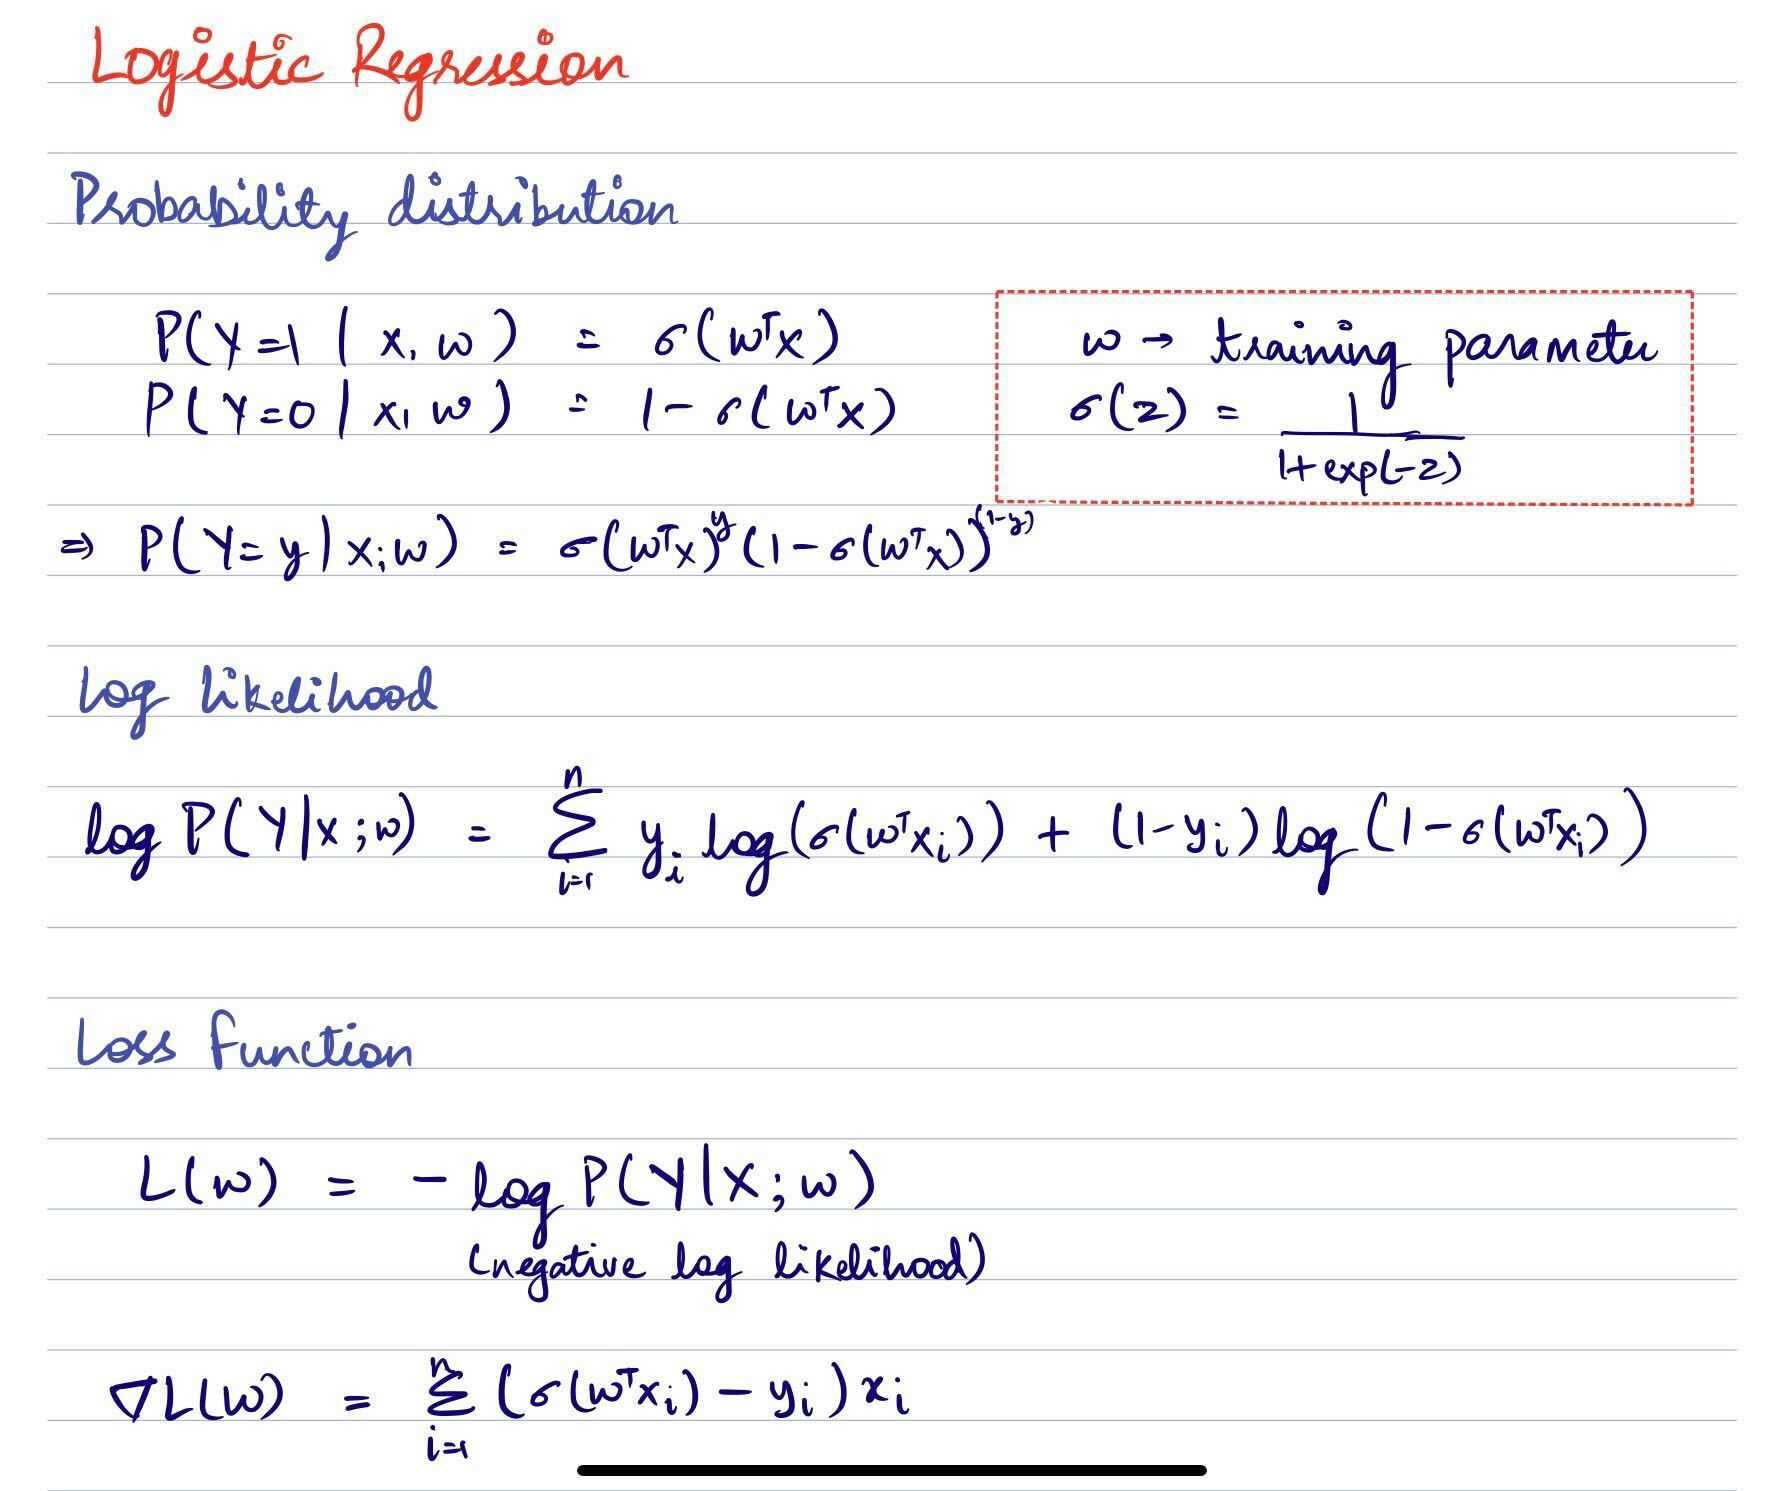 Logistic Regression
Probability distribution
P(Y=1 | x, w) = σ(wᵀx)
P(Y=0 | x, w) = 1 - σ(wᵀx)
w → training parameter
σ(z) = 1 / (1 + exp(-z))
⇒ P(Y=y | x; w) = σ(wᵀx)^y (1 - σ(wᵀx))^(1-y)
Log likelihood
log P(Y|x; w) = ∑_{i=1}^{n} y_i log(σ(wᵀx_i)) + (1-y_i) log(1 - σ(wᵀx_i))
Loss function
L(w) = - log P(Y|X; w)
(negative log likelihood)
∇L(w) = ∑_{i=1}^{n} (σ(wᵀx_i) - y_i) x_i